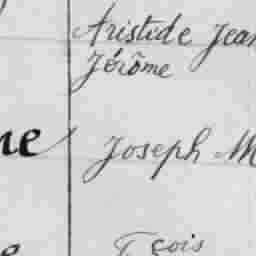 Aristide Jean
Jérôme
ne
Joseph M
Fçois